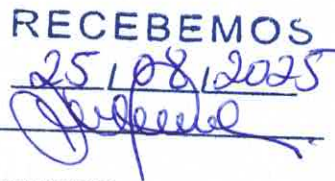 RECEBEMOS
25/08/2025